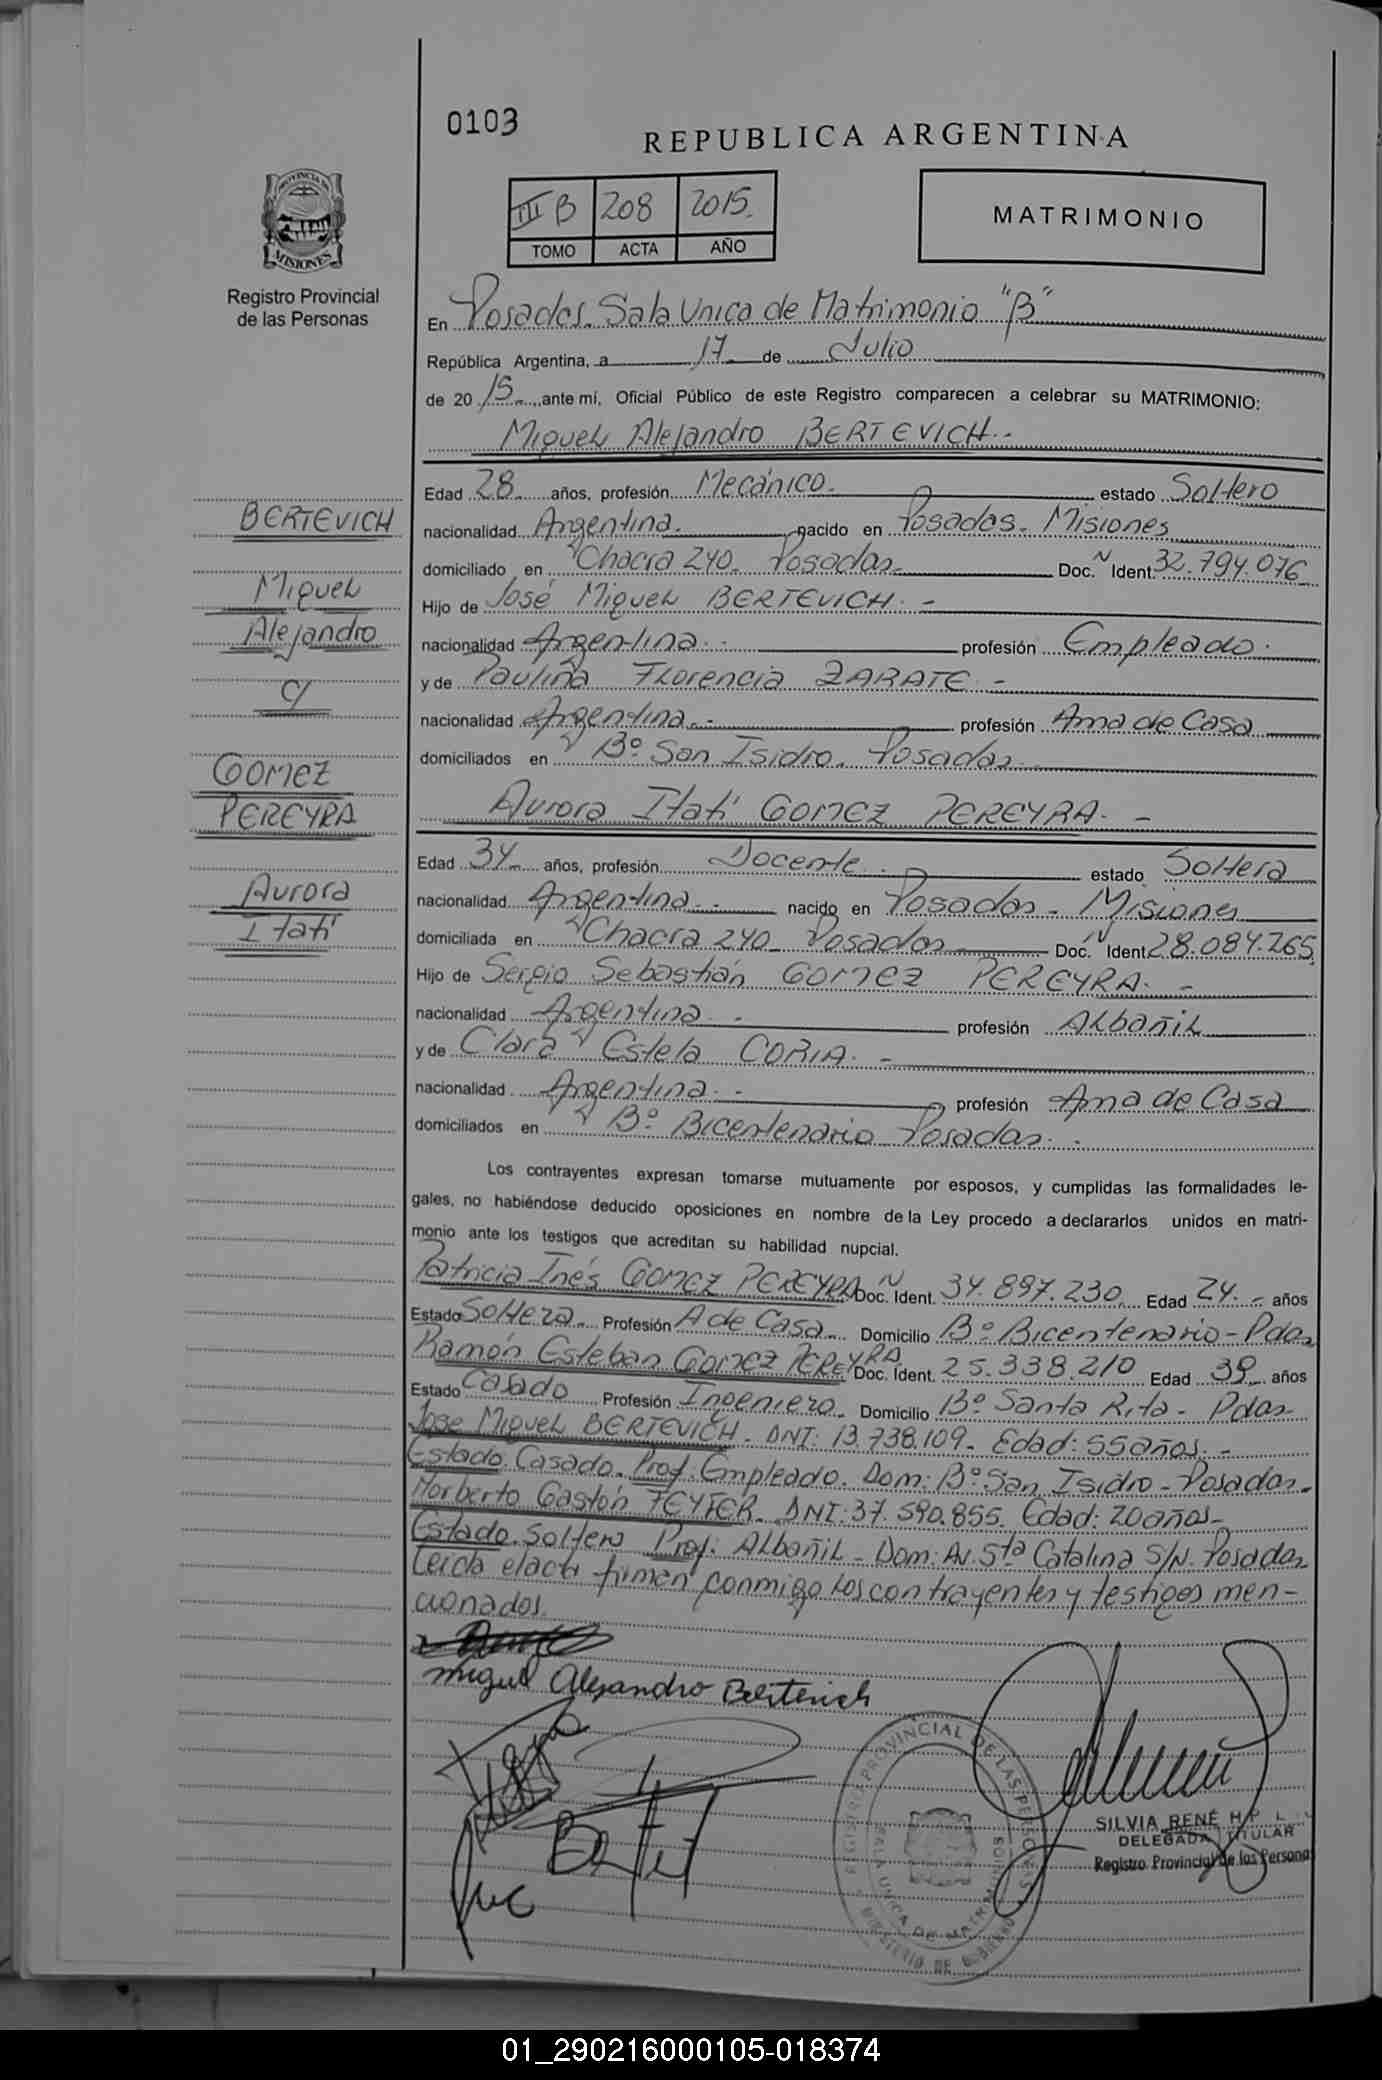 0103
REPUBLICA ARGENTINA
III B 208 2015.
TOMO ACTA AÑO
MATRIMONIO
PROVINCIA DE
MISIONES
Registro Provincial
de las Personas
En Posadas. Sala Unica de Matrimonio "B"
República Argentina, a 17 de Julio
de 20 15 ante mí, Oficial Público de este Registro comparecen a celebrar su MATRIMONIO:
Miguel Alejandro BERTEVICH.-
Edad 28 años, profesión Mecánico. estado Soltero
nacionalidad Argentina. nacido en Posadas. Misiones
domiciliado en Chacra 240. Posadas Doc. N Ident. 32.794.076
Hijo de José Miguel BERTEVICH. -
nacionalidad Argentina. - profesión Empleado.
y de Paulina Florencia ZARATE -
nacionalidad Argentina. - profesión Ama de Casa
domiciliados en Bº San Isidro. Posadas
Aurora Itatí GOMEZ PEREYRA. -
Edad 34 años, profesión Docente. estado Soltera
nacionalidad Argentina. - nacido en Posadas. Misiones
domiciliada en Chacra 240. Posadas Doc. N Ident 28.084.265
Hijo de Sergio Sebastián GOMEZ PEREYRA. -
nacionalidad Argentina. profesión Albañil
y de Clara Estela CORIA. -
nacionalidad Argentina. - profesión Ama de Casa
domiciliados en Bº Bicentenario Posadas.
Los contrayentes expresan tomarse mutuamente por esposos, y cumplidas las formalidades le-
gales, no habiéndose deducido oposiciones en nombre de la Ley procedo a declararlos unidos en matri-
monio ante los testigos que acreditan su habilidad nupcial.
Patricia Inés GOMEZ PEREYRA. Doc. N Ident. 34.897.230 Edad 24. - años
Estado Soltera. Profesión A de Casa. Domicilio Bº Bicentenario - Pdas
Ramón Esteban GOMEZ PEREYRA Doc. Ident. 25.338.210 Edad 39 años
Estado Casado Profesión Ingeniero. Domicilio Bº Santa Rita - Pdas
Jose Miguel BERTEVICH. DNI: 13.738.109. Edad: 55 años. -
Estado. Casado. Prof. Empleado. Dom: Bº San Isidro - Posadas.
Norberto Gastón FEYFER. DNI: 37.590.855. Edad: 20 años -
Estado. Soltero Prof: Albañil - Dom: Av. Sta Catalina S/N. Posadas
Leida el acta firman conmigo los contrayentes y testigos men-
cionados.
Miguel Alejandro Bertevich
REGISTRO PROVINCIAL DE LAS PERSONAS
SALA UNICA DE MATRIMONIOS
MINISTERIO DE GOBIERNO
SILVIA RENÉ
DELEGADA TITULAR
Registro Provincial de las Personas
BERTEVICH
Miguel
Alejandro
C/
GOMEZ
PEREYRA
Aurora
Itatí
01_290216000105-018374